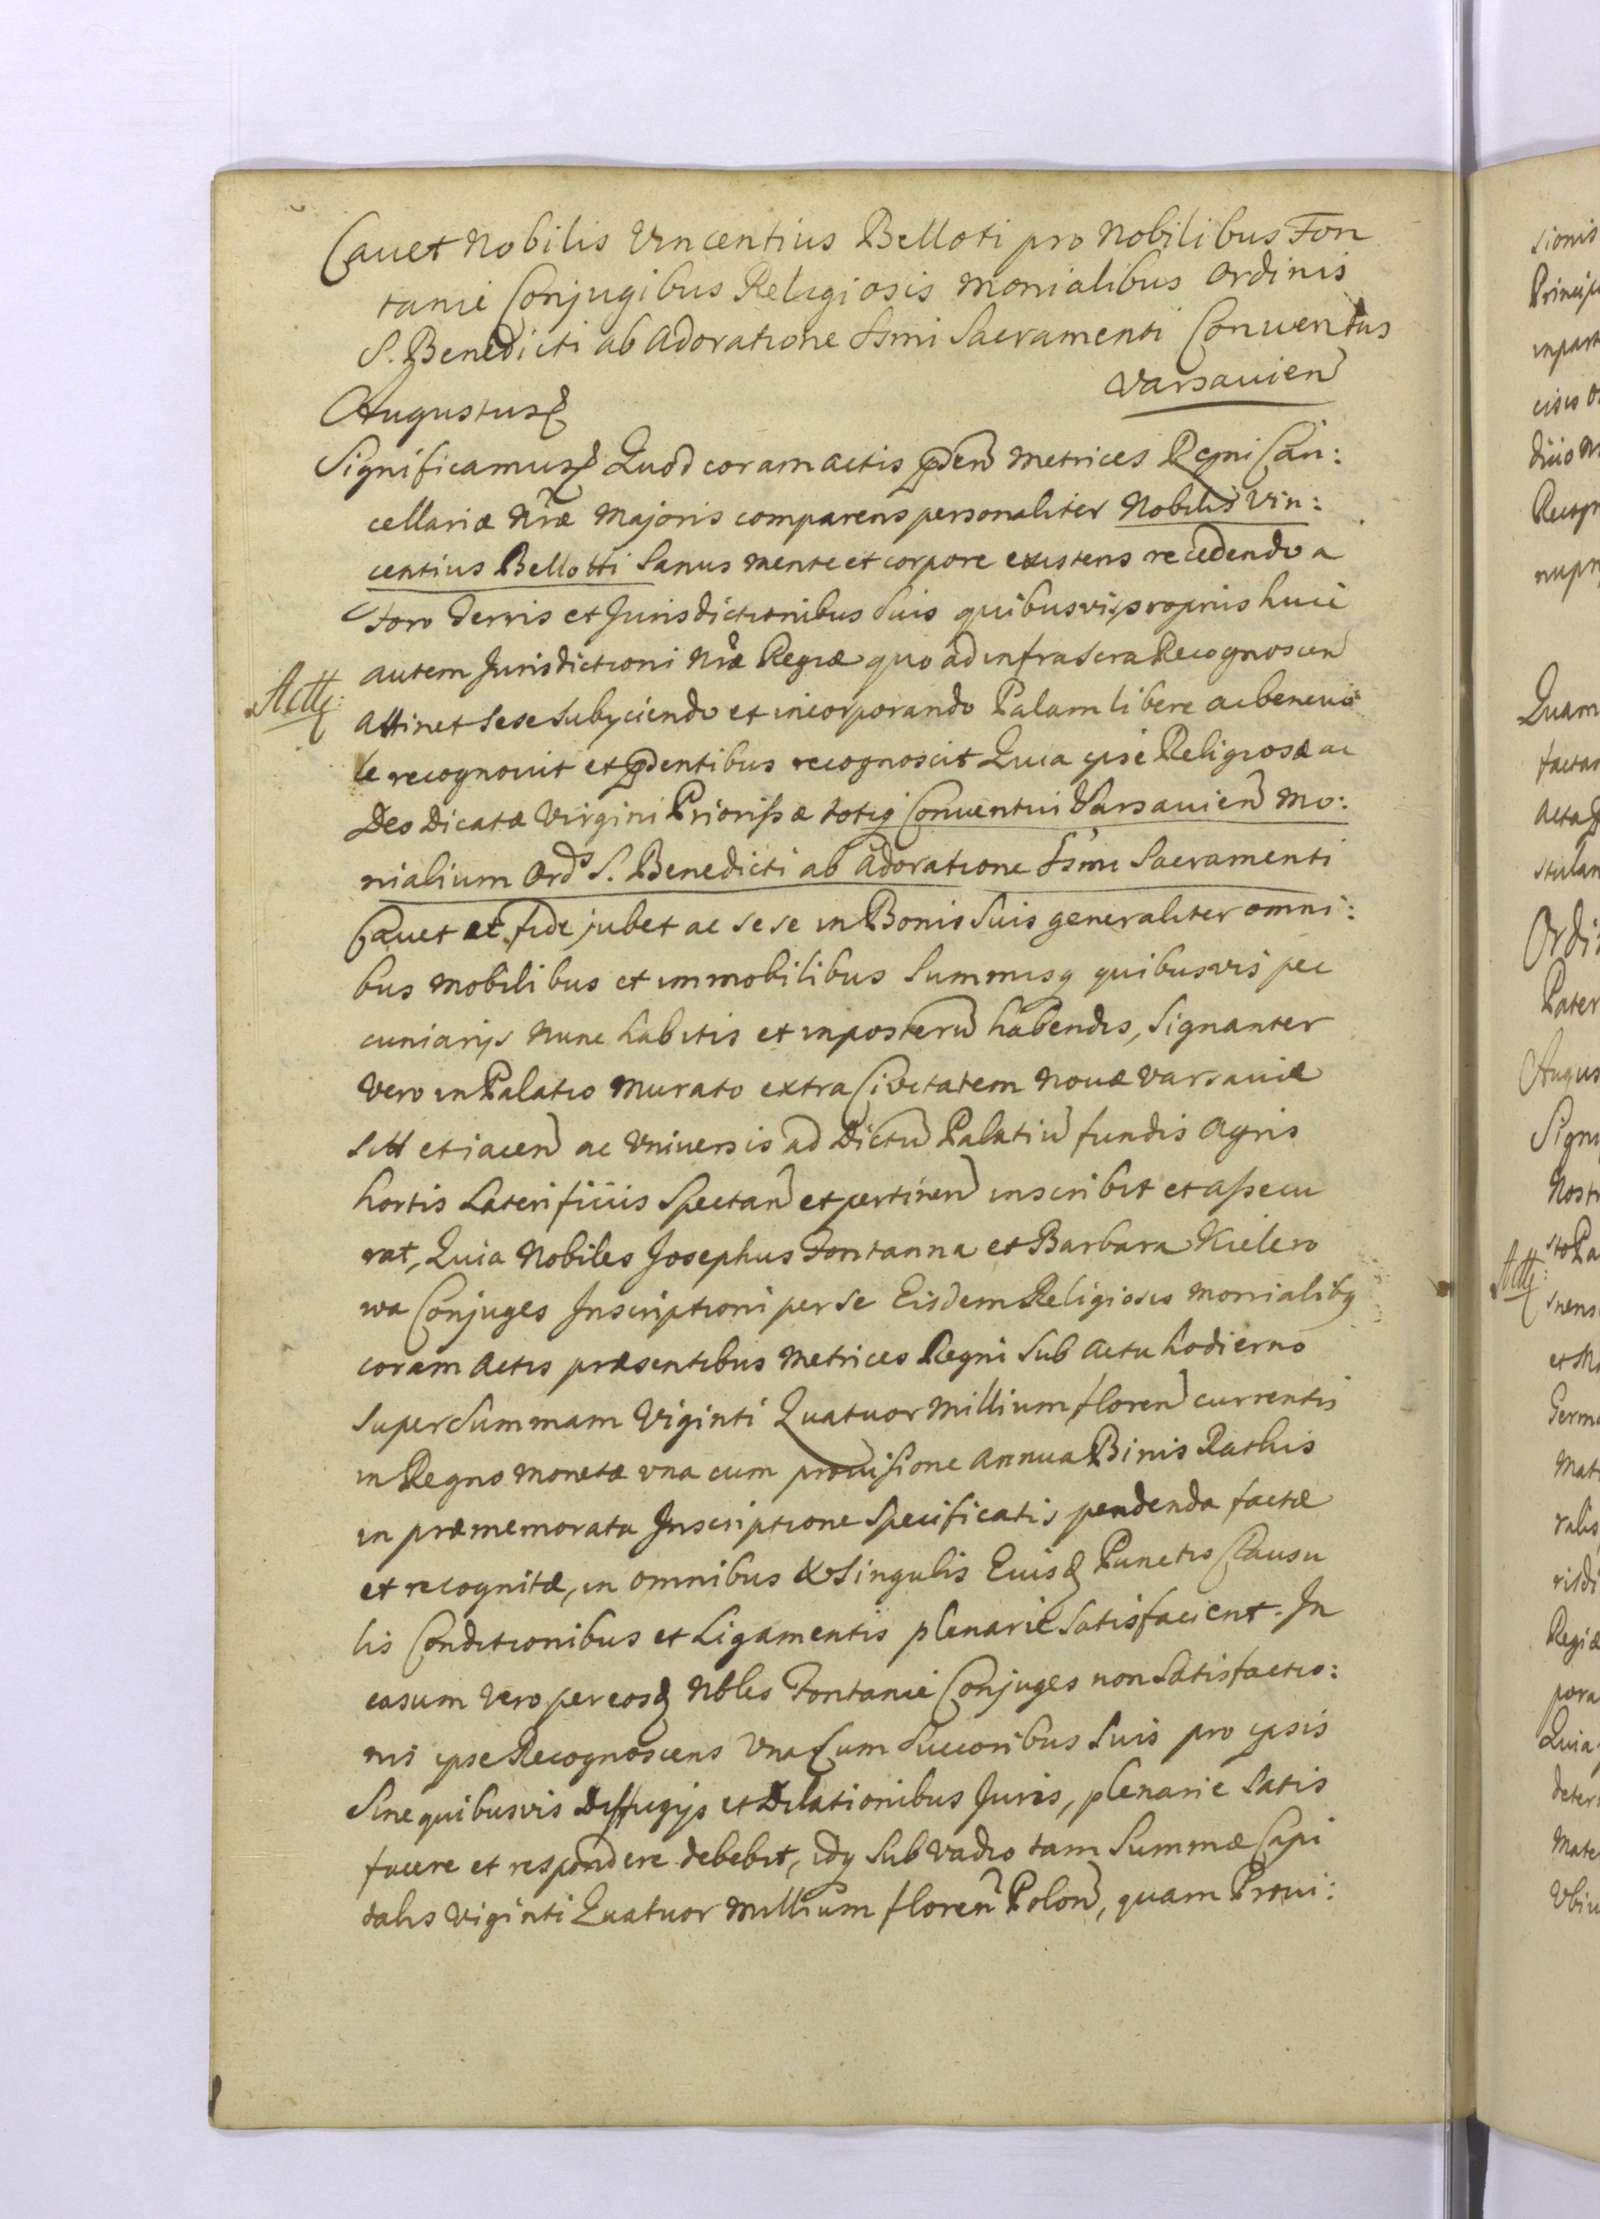 Cauet Nobilis Vincentius Belloti pro Nobilibus Fon
tanie Conjugibus Religiosis Monialibus Ordinis
S. Benedicti ab Adoratione Ssmi Sacramenti Conuentus
Varsauien
Augustus
Significamus Quod coram actis pden Metrices Regni Can:
cellariæ Nræ Majoris comparens personaliter Nobilis Vin:
centius Bellotti Sanus mente et corpore existens recedendo a
foro Terris et Jurisdictionibus suis quibusvis proprijs huic
Actt:
autem Jurisdictioni Nræ Regiæ quo ad infra Scra Recognoscen
attinet sese subijciendo et incorporando Palam libere ac beneuo
le recognouit et pdentibus recognoscit Quia ipse Religiosæ ac
Deo Dicatæ Virgini Priorissæ totiq Conuentui Varsauien Mo:
nialium Ords S. Benedicti ab Adoratione Ssmi Sacramenti
Cauet et fide jubet ac sese in Bonis suis generaliter omni:
bus mobilibus et immobilibus summisq quibusvis pec
cuniarijs nunc habitis et inposteru habendis, Signanter
Vero in Palatio Murato extra Civitatem Nouæ Varsauiæ
sitt et iacen ac Vniversis ad Dictu Palatiu fundis Agris
hortis Laterificiis Spectan et pertinen inscribit et assecu
rat, Quia Nobiles Josephus Fontanna et Barbara Kielero
wa Conjuges Inscriptioni per se Eisdem Religiosis Monialibq
coram Actis præsentibus Metrices Regni Sub Actu hodierno
super Summam Viginti Quatuor Millium floren currentis
in Regno monetæ vna cum prouisione Annua Binis Rathis
in præmemorata Inscriptione Specificatis pendenda factæ
et recognitæ, in omnibus & Singulis Eiusd Punctis Clausu
lis Conditionibus et Ligamentis plenarie Satisfacient. In
casum Vero per eosd Nbles Fontanie Conjuges non Satisfactio:
nis ipse Recognoscens Vna Cum Succoribus Suis pro ipsis
Sine quibusvis Diffugijs et Dilationibus Juris, plenarie Satis
facere et respondere debebit, idq Sub Vadio tam Summæ Capi
talis Viginti Quatuor Millium floren Polon, quam Proui: